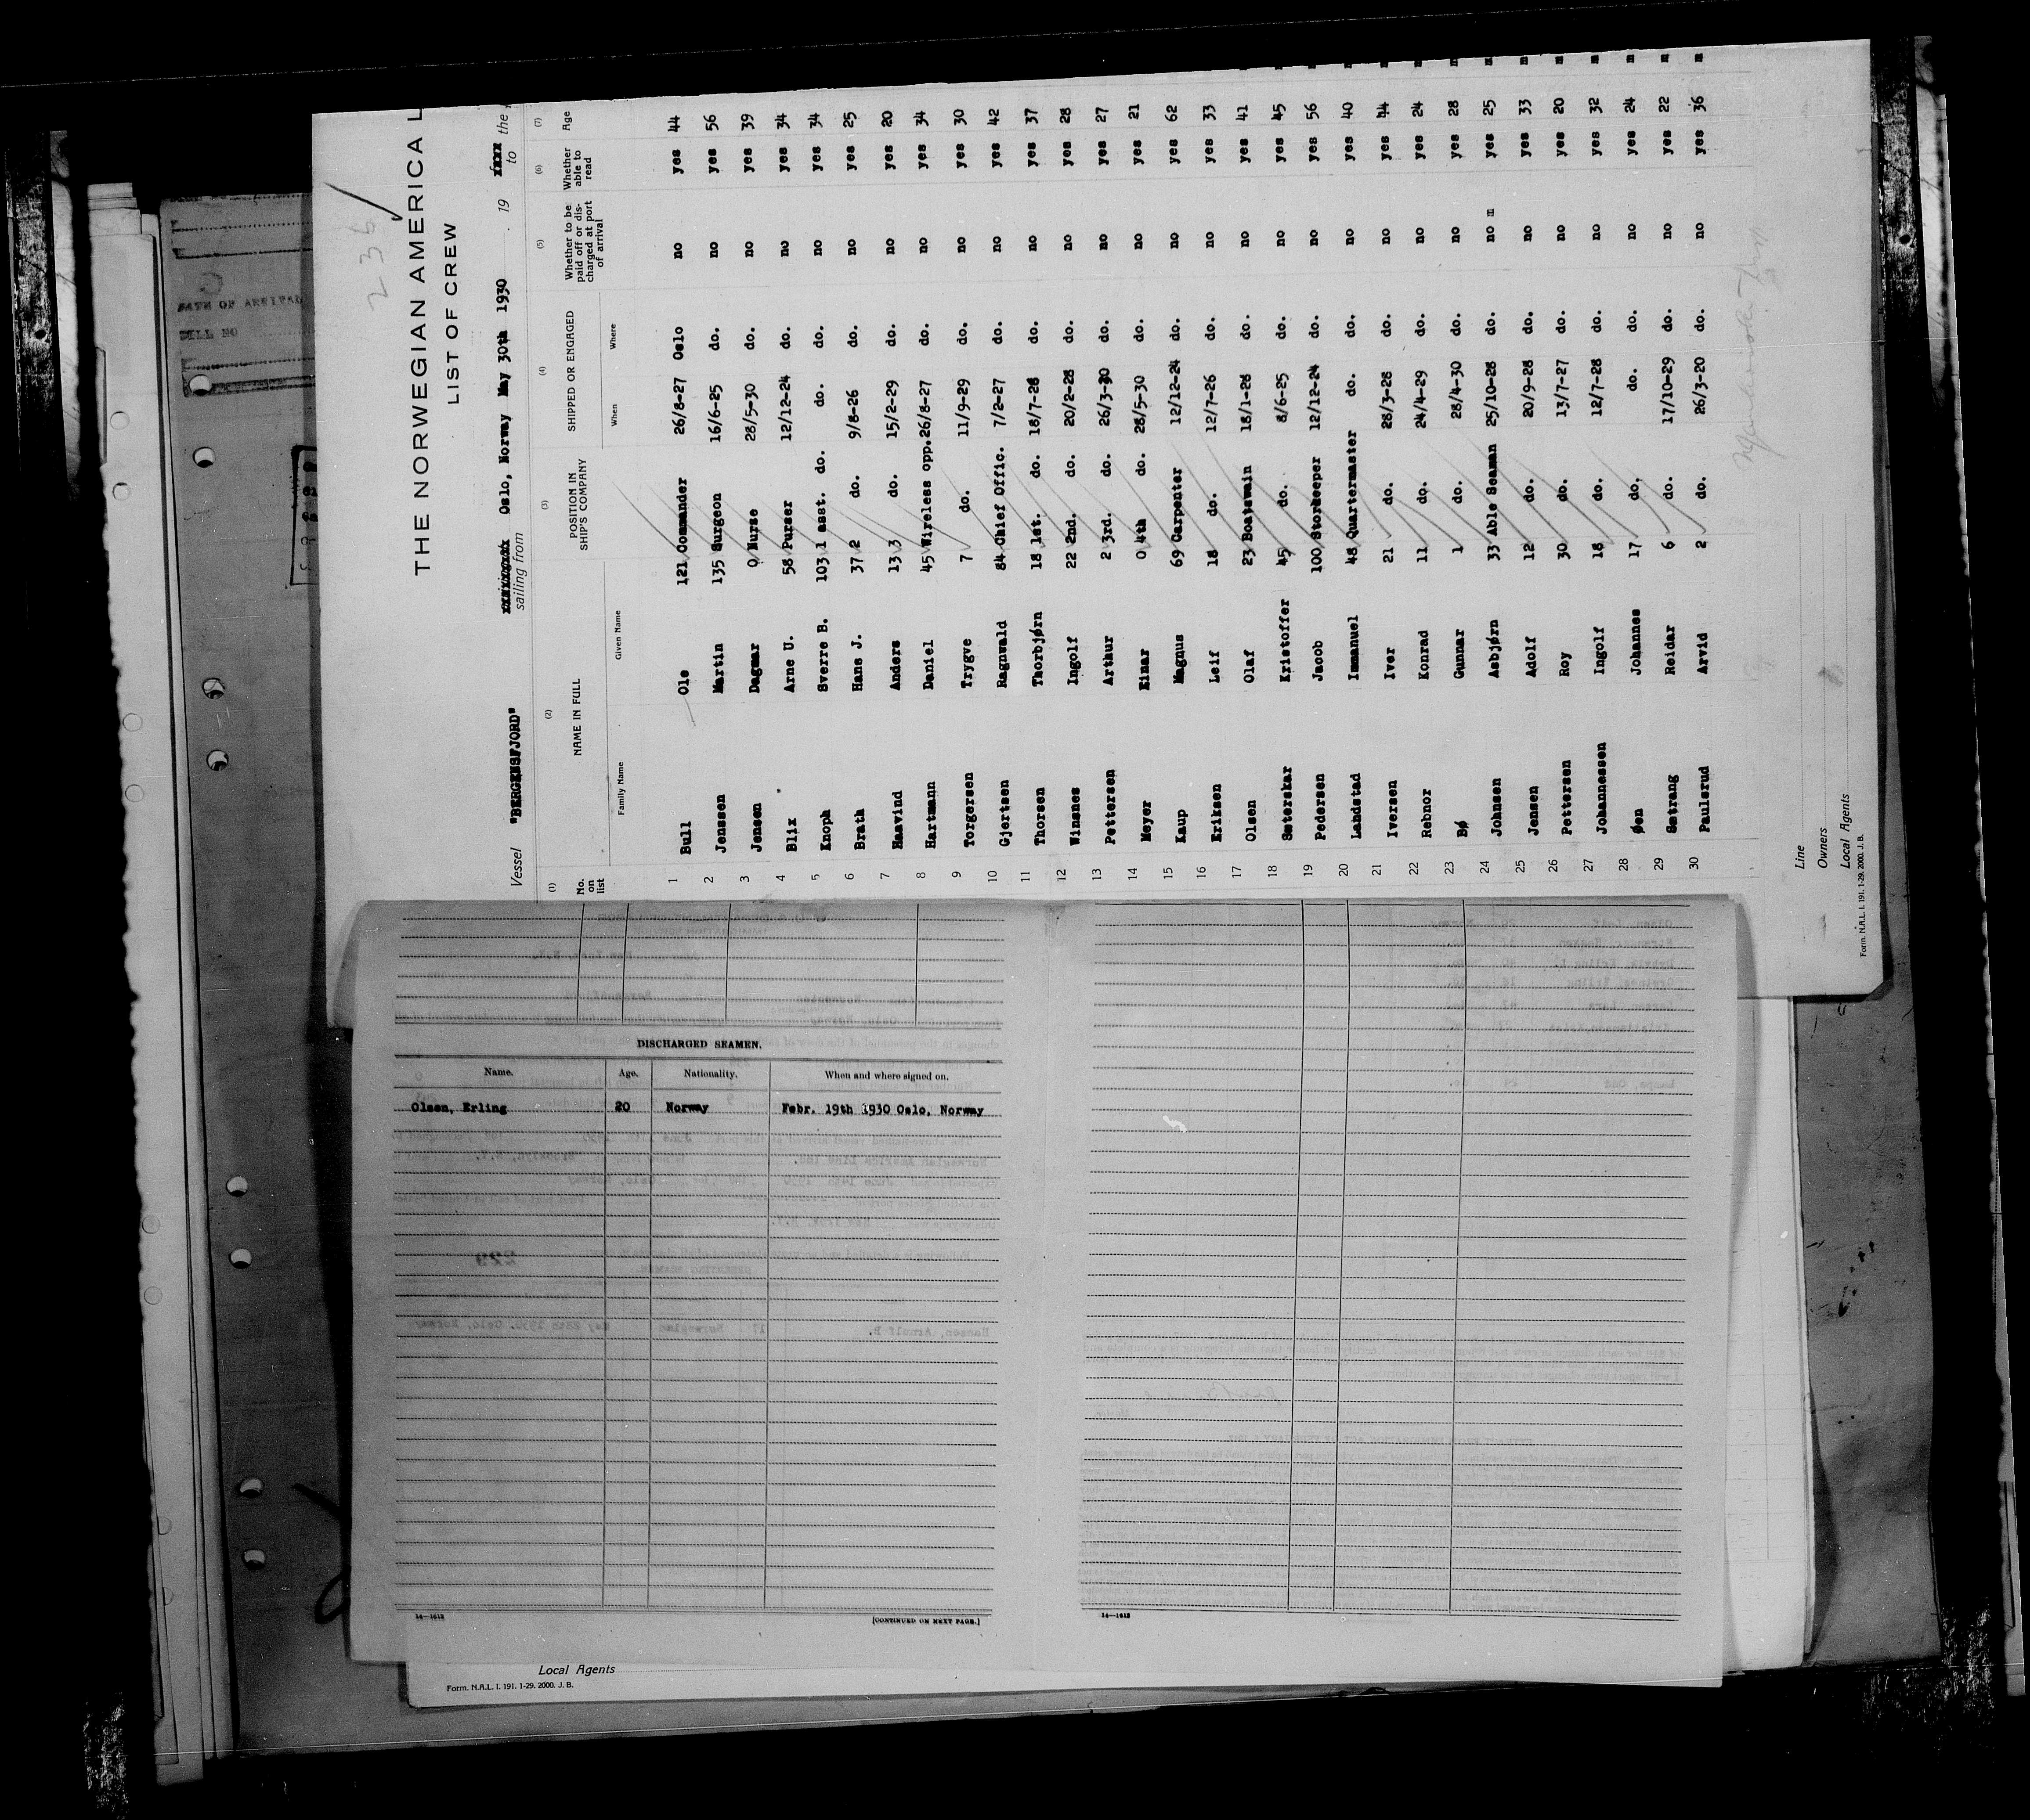 236
THE NORWEGIAN AMERICA L
LIST OF CREW
Vessel "BERGENSFJORD" sailing from Oslo, Norway May 30th 1930 . 19 to the
(1) (2) (3) (4) (5) (6) (7)
No. on list NAME IN FULL POSITION IN SHIP'S COMPANY SHIPPED OR ENGAGED Whether to be paid off or discharged at port of arrival Whether able to read Age
Family Name Given Name When Where
1 Bull Ole 121 Commander 26/8-27 Oslo no yes 44
2 Jenssen Martin 135 Surgeon 16/6-25 do. no yes 56
3 Jensen Dagmar 0 Nurse 28/5-30 do. no yes 39
4 Blix Arne U. 58 Purser 12/12-24 do. no yes 34
5 Knoph Sverre B. 103 1 asst. do. do. do. no yes 34
6 Brath Hans J. 37 2 do. 9/8-26 do. no yes 25
7 Haavind Anders 13 3 do. 15/2-29 do. no yes 20
8 Hartmann Daniel 45 Wireless opp. 26/8-27 do. no yes 34
9 Torgersen Trygve 7 do. 11/9-29 do. no yes 30
10 Gjertsen Ragnwald 84 Chief Offic. 7/2-27 do. no yes 42
11 Thorsen Thorbjørn 18 1st. do. 18/7-28 do. no yes 37
12 Winsnes Ingolf 22 2nd. do. 20/2-28 do. no yes 28
13 Pettersen Arthur 2 3rd. do. 26/3-30 do. no yes 27
14 Meyer Einar 0 4th do. 28/5-30 do. no yes 21
15 Kaup Magnus 69 Carpenter 12/12-24 do. no yes 62
16 Eriksen Leif 18 do. 12/7-26 do. no yes 33
17 Olsen Olaf 23 Boatswain 18/1-28 do. no yes 41
18 Sæterskar Kristoffer 45 do. 8/6-25 do. no yes 45
19 Pedersen Jacob 100 Storkeeper 12/12-24 do. no yes 56
20 Landstad Immanuel 48 Quartermaster do. do. no yes 40
21 Iversen Iver 21 do. 28/3-28 do. no yes 44
22 Rebnor Konrad 11 do. 24/4-29 do. no yes 24
23 Bø Gunnar 1 do. 28/4-30 do. no yes 28
24 Johnsen Asbjørn 33 Able Seaman 25/10-28 do. no m yes 25 m
25 Jensen Adolf 12 do. 20/9-28 do. no yes 33 m
26 Pettersen Roy 30 do. 13/7-27 do. no yes 20 m
27 Johannessen Ingolf 18 do. 12/7-28 do. no yes 32 m
28 Øen Johannes 17 do. do. do. no yes 24 m
29 Sætrang Reidar 6 do. 17/10-29 do. no yes 22 m
30 Paulsrud Arvid 2 do. 26/3-20 do. no yes 36 m
Line
Owners
Local Agents
Form. N.A.L. I. 191. 1-29. 2000. J. B.
DATE OF ARRIVAL
BILL NO
DISCHARGED SEAMEN.
Name. Age. Nationality. When and where signed on.
Olsen, Erling 20 Norway Febr. 19th 1930 Oslo, Norway
14—1613
[CONTINUED ON NEXT PAGE.]
14—1613
Local Agents
Form. N.A.L. I. 191. 1-29. 2000. J. B.